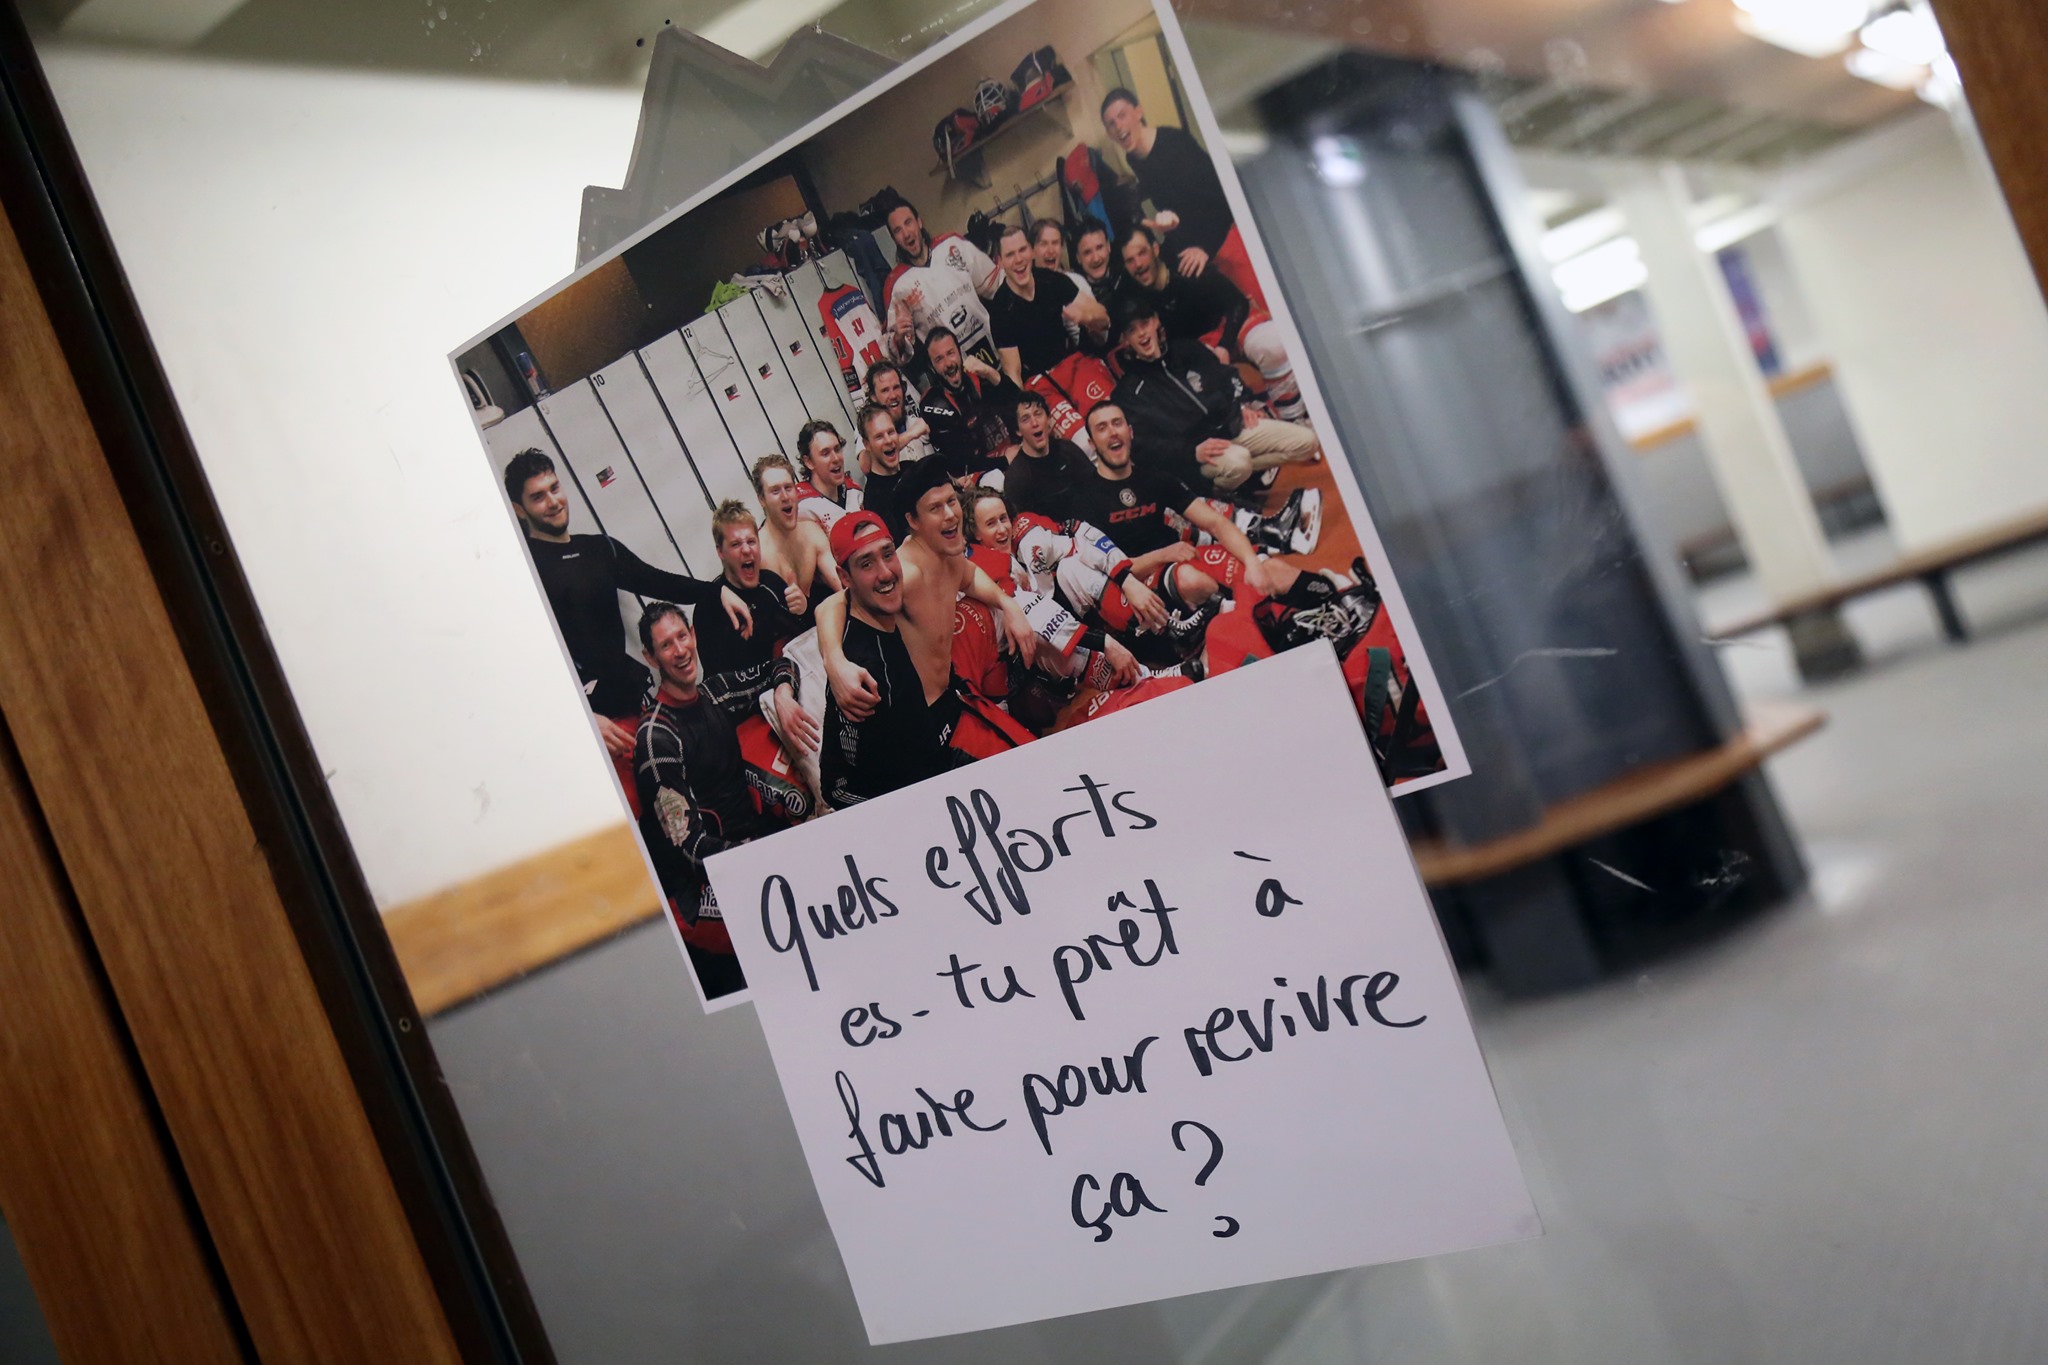 10
12
CCM
21
CCM
Quels efforts
es-tu prêt à
faire pour revivre
ça ?